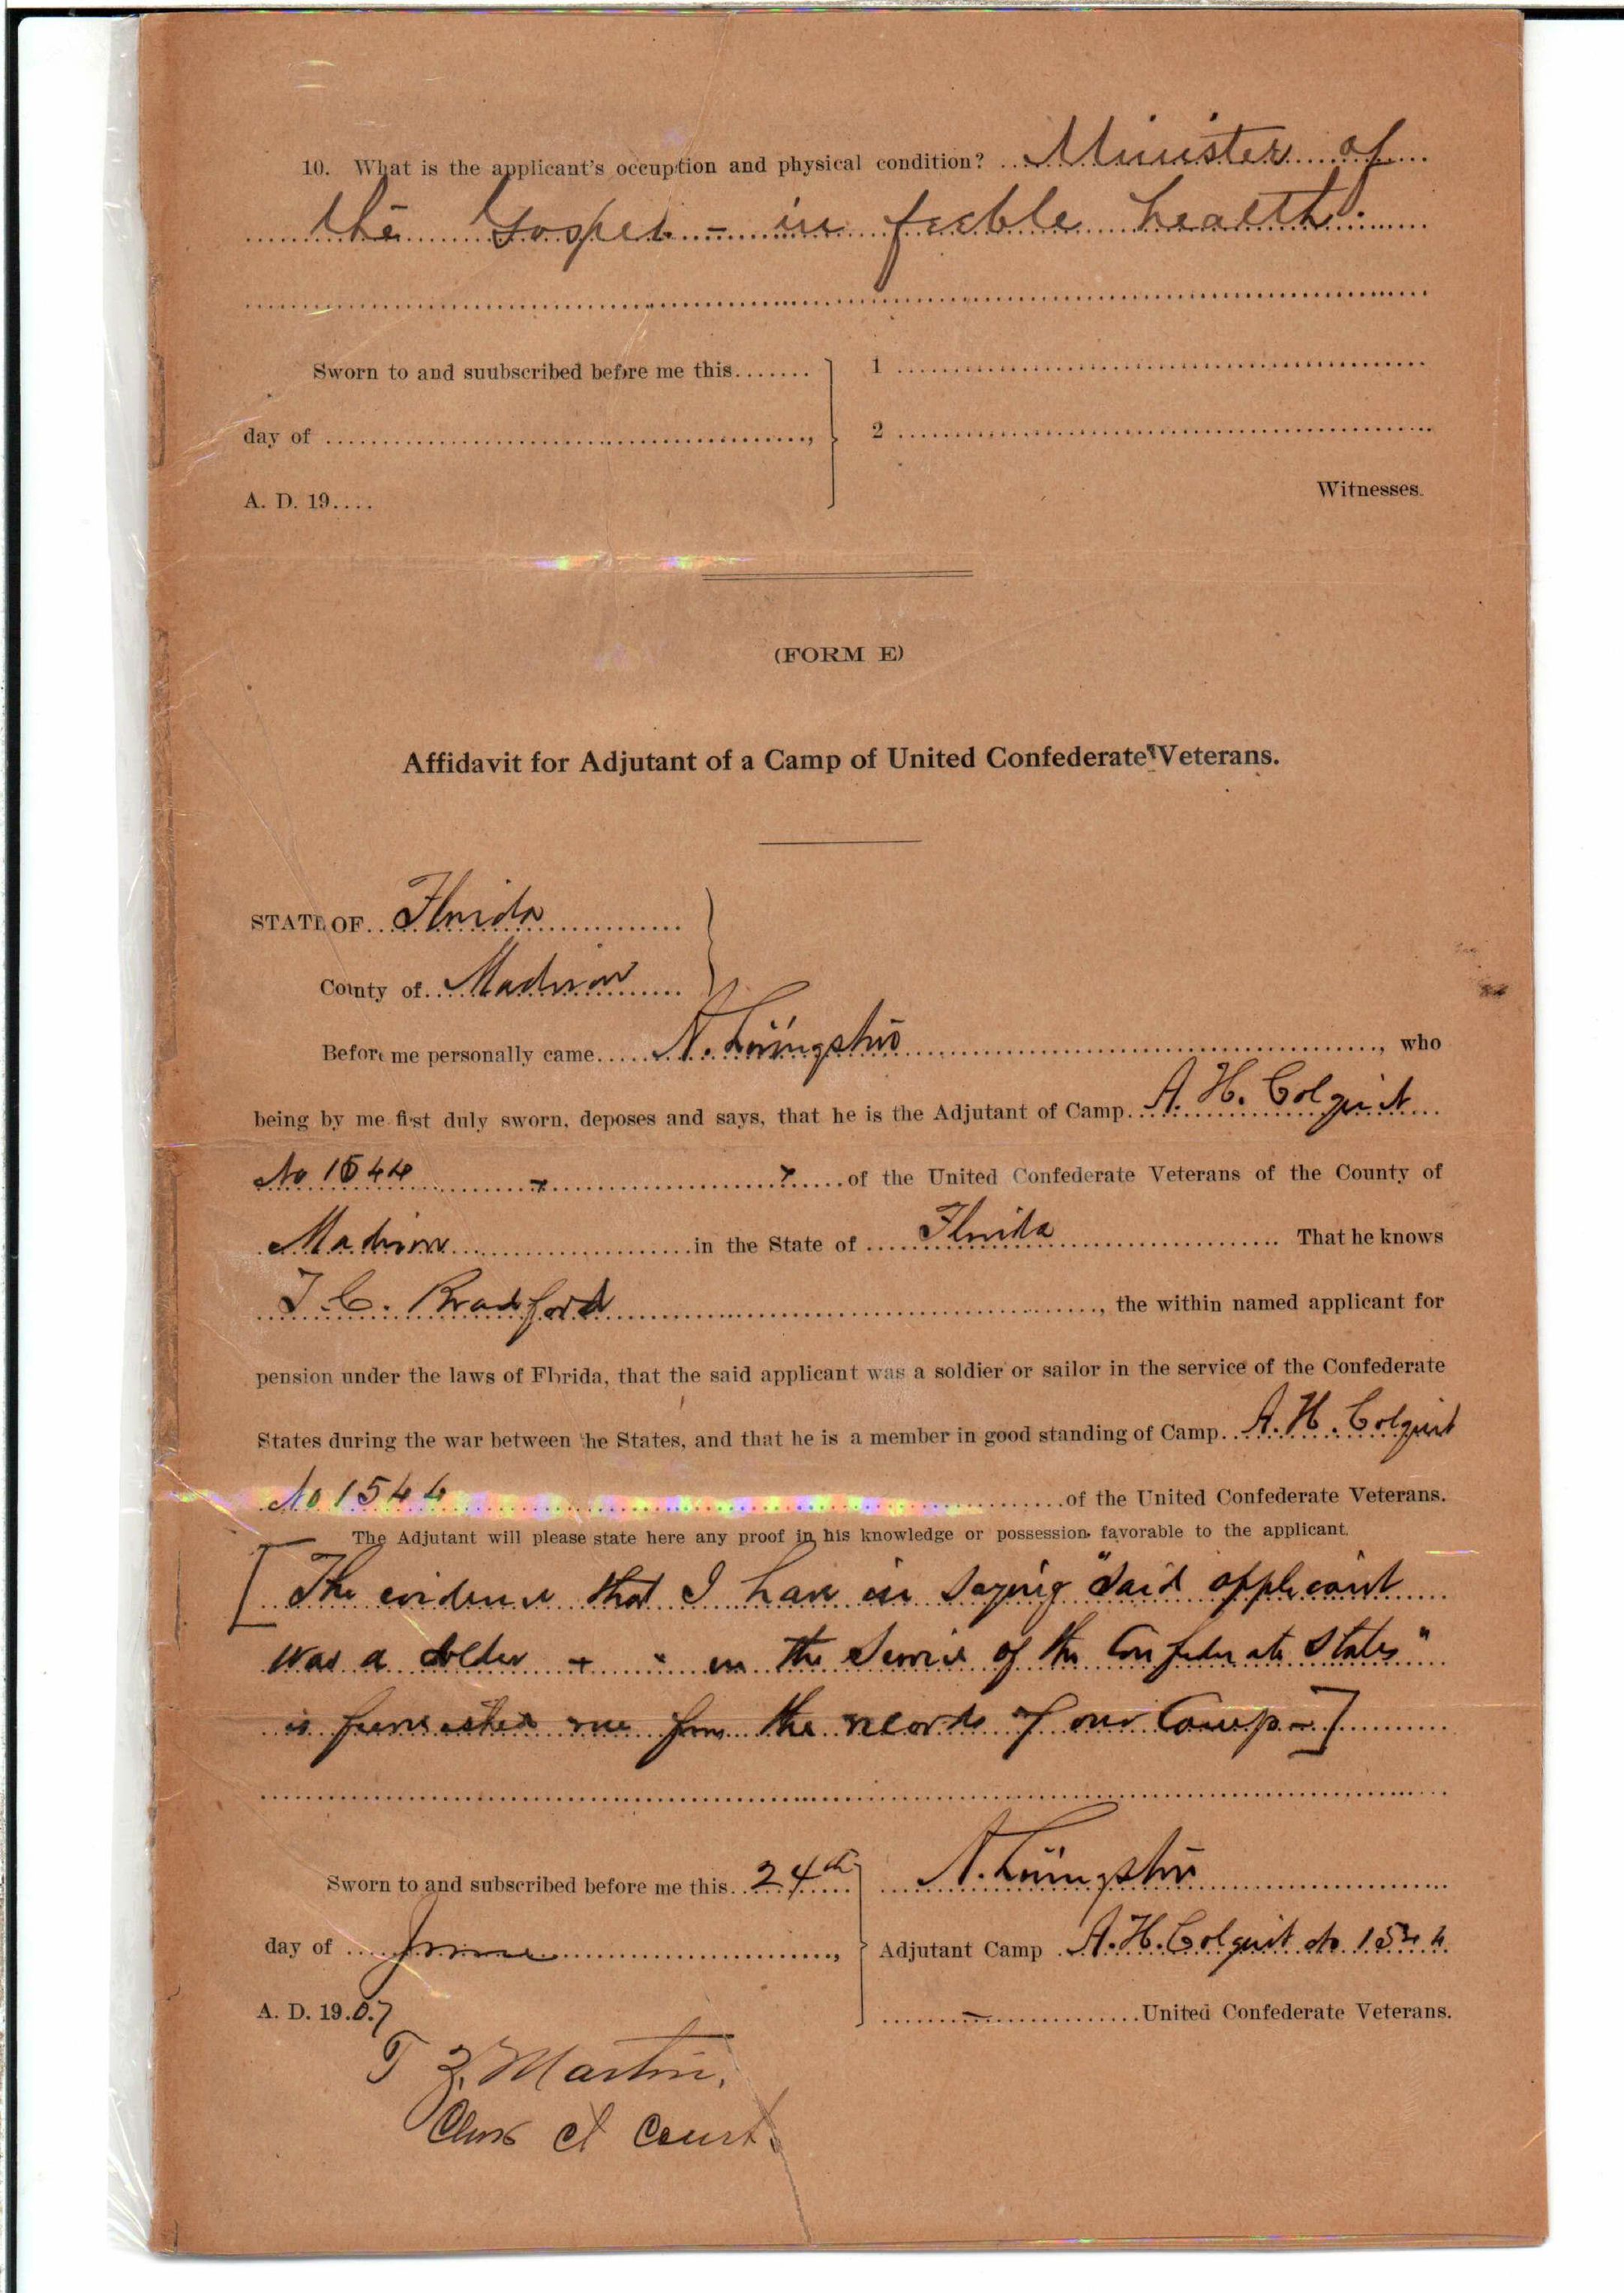 10. What is the applicant's occuption and physical condition? Minister of
the Gospel - in feeble health.
Sworn to and suubscribed before me this....... 1
day of ......, 2
A. D. 19.... Witnesses.
(FORM E)
Affidavit for Adjutant of a Camp of United Confederate Veterans.
STATE OF Florida
County of Madison
Before me personally came N. Livingston, who
being by me first duly sworn, deposes and says, that he is the Adjutant of Camp A. H. Colquit
No 1544 of the United Confederate Veterans of the County of
Madison in the State of Florida That he knows
T. C. Bradford, the within named applicant for
pension under the laws of Florida, that the said applicant was a soldier or sailor in the service of the Confederate
States during the war between the States, and that he is a member in good standing of Camp A. H. Colquit
No 1544 of the United Confederate Veterans.
The Adjutant will please state here any proof in his knowledge or possession favorable to the applicant.
[The evidence that I have in saying "said applicant
was a solder + " in the Service of the Confederate States"
is furnished me from the records of our Camp-]
Sworn to and subscribed before me this 24th N. Livingston
day of June, Adjutant Camp A. H. Colquit No 1544
A. D. 1907 United Confederate Veterans.
T Z. Martin,
Clerk Ct Court.